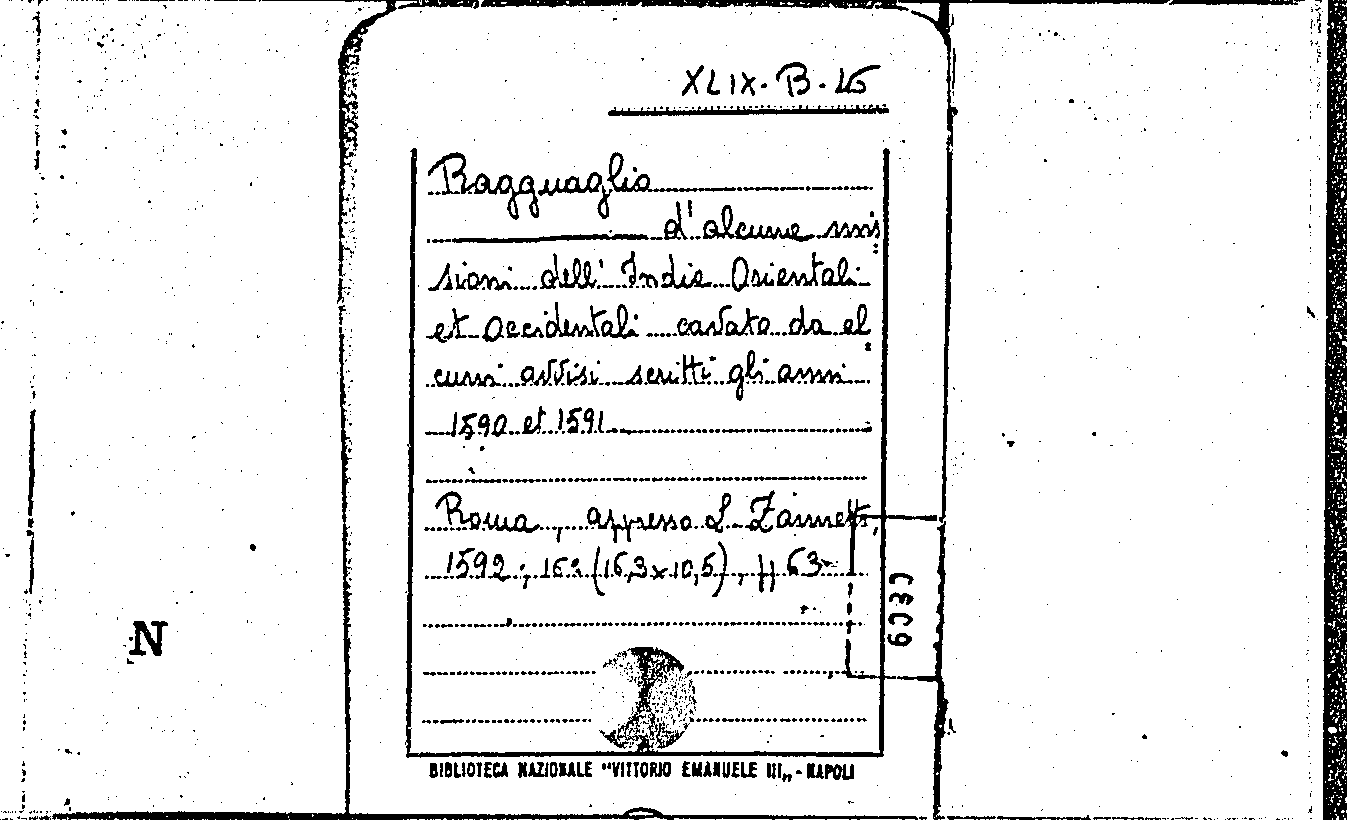 XLIX. B. 45
Ragguaglio
d'alcune mis
sioni dell' Indie Orientali
et Occidentali cavato da al
cuni avvisi scritti gli anni
1590 et 1591
Roma, appresso L. Zannetti,
1592; 16º (16,3x10,5), ff 63
N
BIBLIOTECA NAZIONALE "VITTORIO EMANUELE III„ - NAPOLI